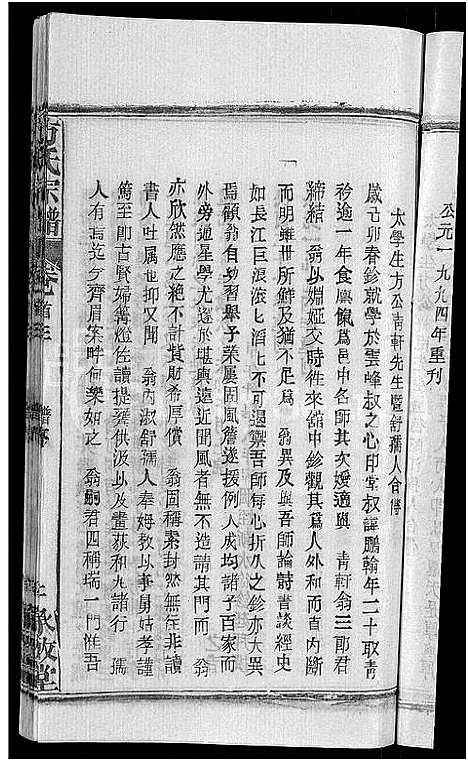 公元一九九四年重刊
太學生方公青軒先生暨舒孺人合傳
歲己卯春鉁就學於雲峰叔之心印堂叔諱鵬翰年二十取青
衿逾一年食廩餼爲邑中名師其次嫒適與 青軒翁三郎君
締結 翁以姻婭交時徃來舘中鉁觀其爲人外和而直内斷
而明雖世所鮮及猶不足爲 翁異及與吾師論詩書談經史
如長江巨浪滚滚滔滔不可遏禦吾師每心折久之鉁亦大異
焉顧翁自幼習舉子業屢困風簷遂援例入成均諸子百家而
外旁通星學尤邃於堪輿遠近聞風者無不造請其門而 翁
亦欣然應之絶不計貲財希厚償 翁固稱素封然無在非讀
書人吐属也抑又聞 翁内淑舒孺人奉姆教以事舅姑孝謹
篤至即古賢婦篝燈佐讀提甕供汲以及畫荻和丸諸行 孺
人有焉迄今齊眉案畔何樂如之 翁嗣君四稱瑞一門惟吾
方氏宗譜
卷首三
譜序
敬堂